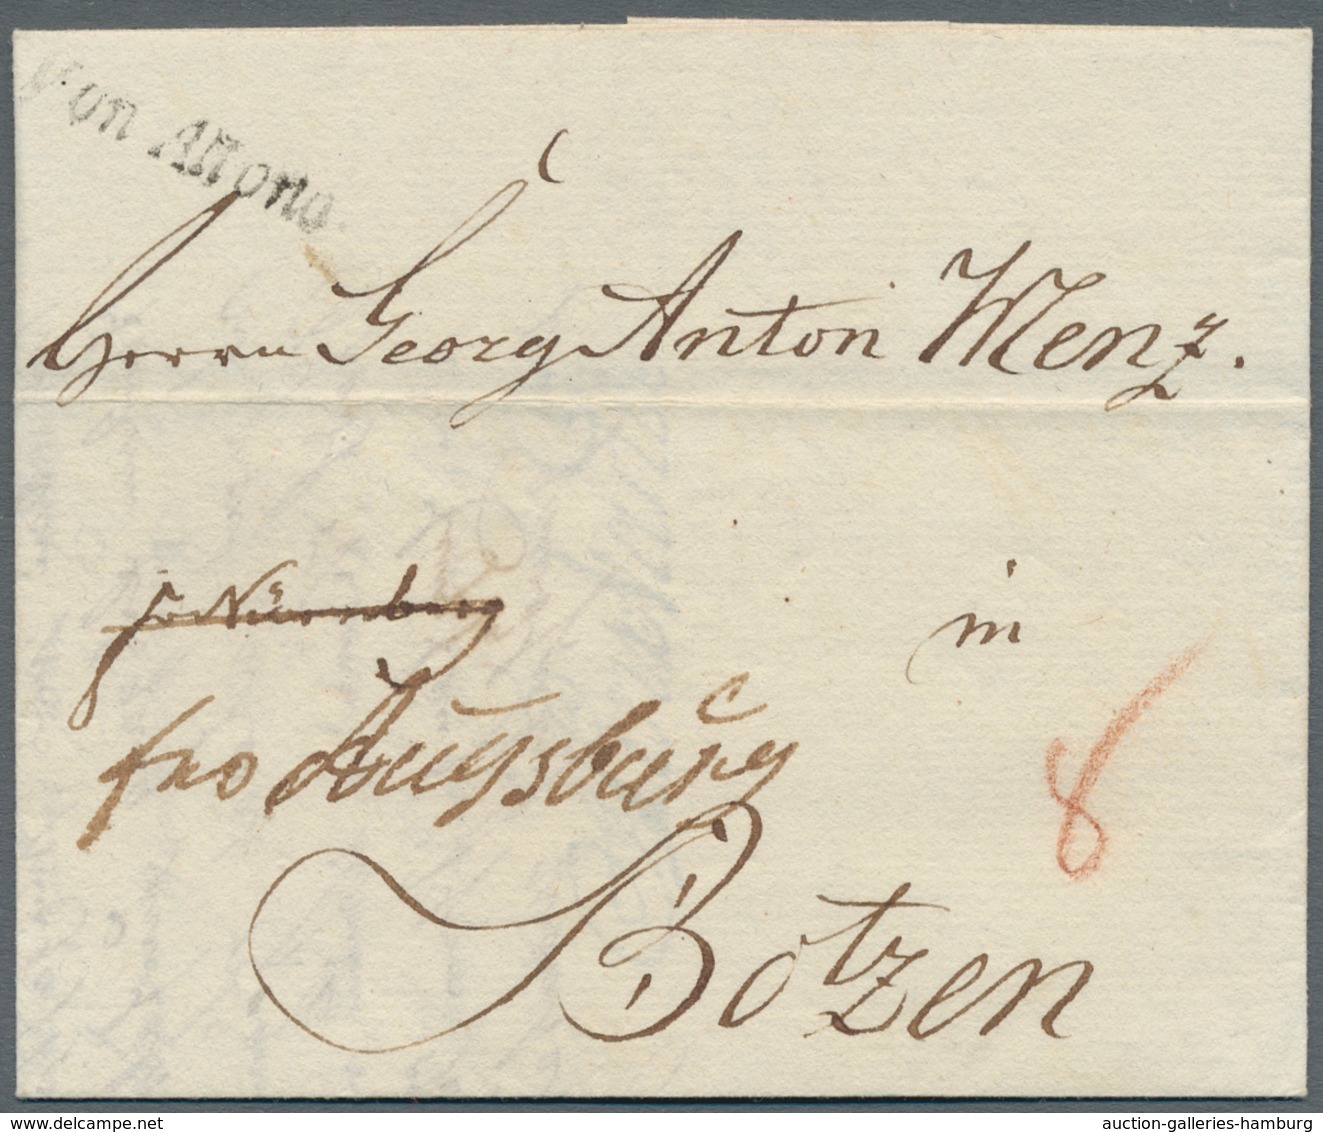 Von Altona.
Herrn Georg Anton Menz.
fr Nürnberg
in
fro Augsburg
8
Botzen
www.delcampe.net
auction-galleries-hamburg